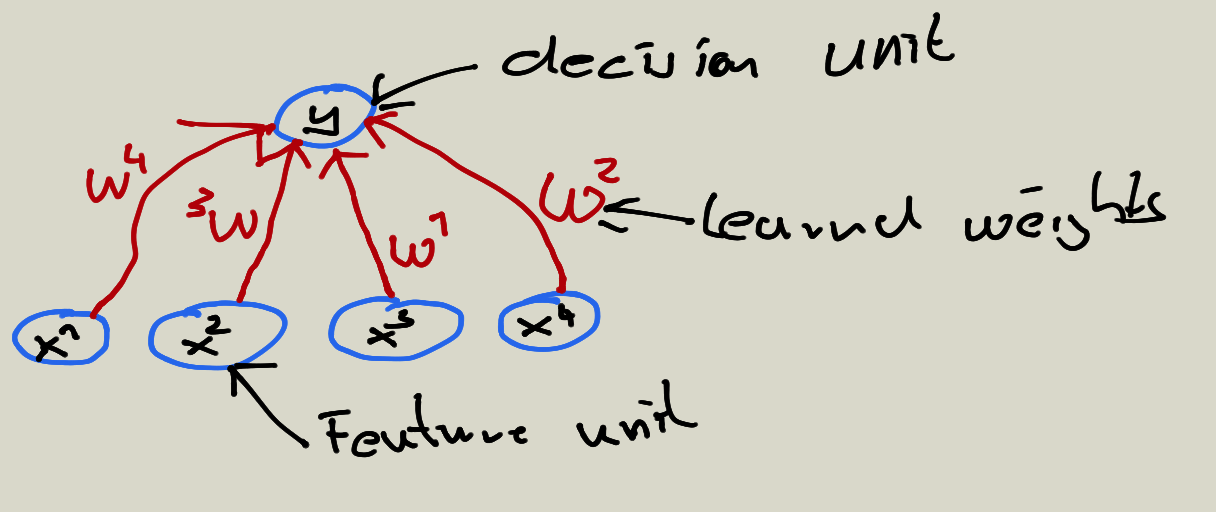 decision unit
y
w⁴
³w
w¹
w²
Learnd weights
x¹
x²
x³
x⁴
Feuture unit